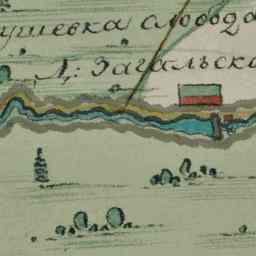 ушевка слобода
Д: Загальска